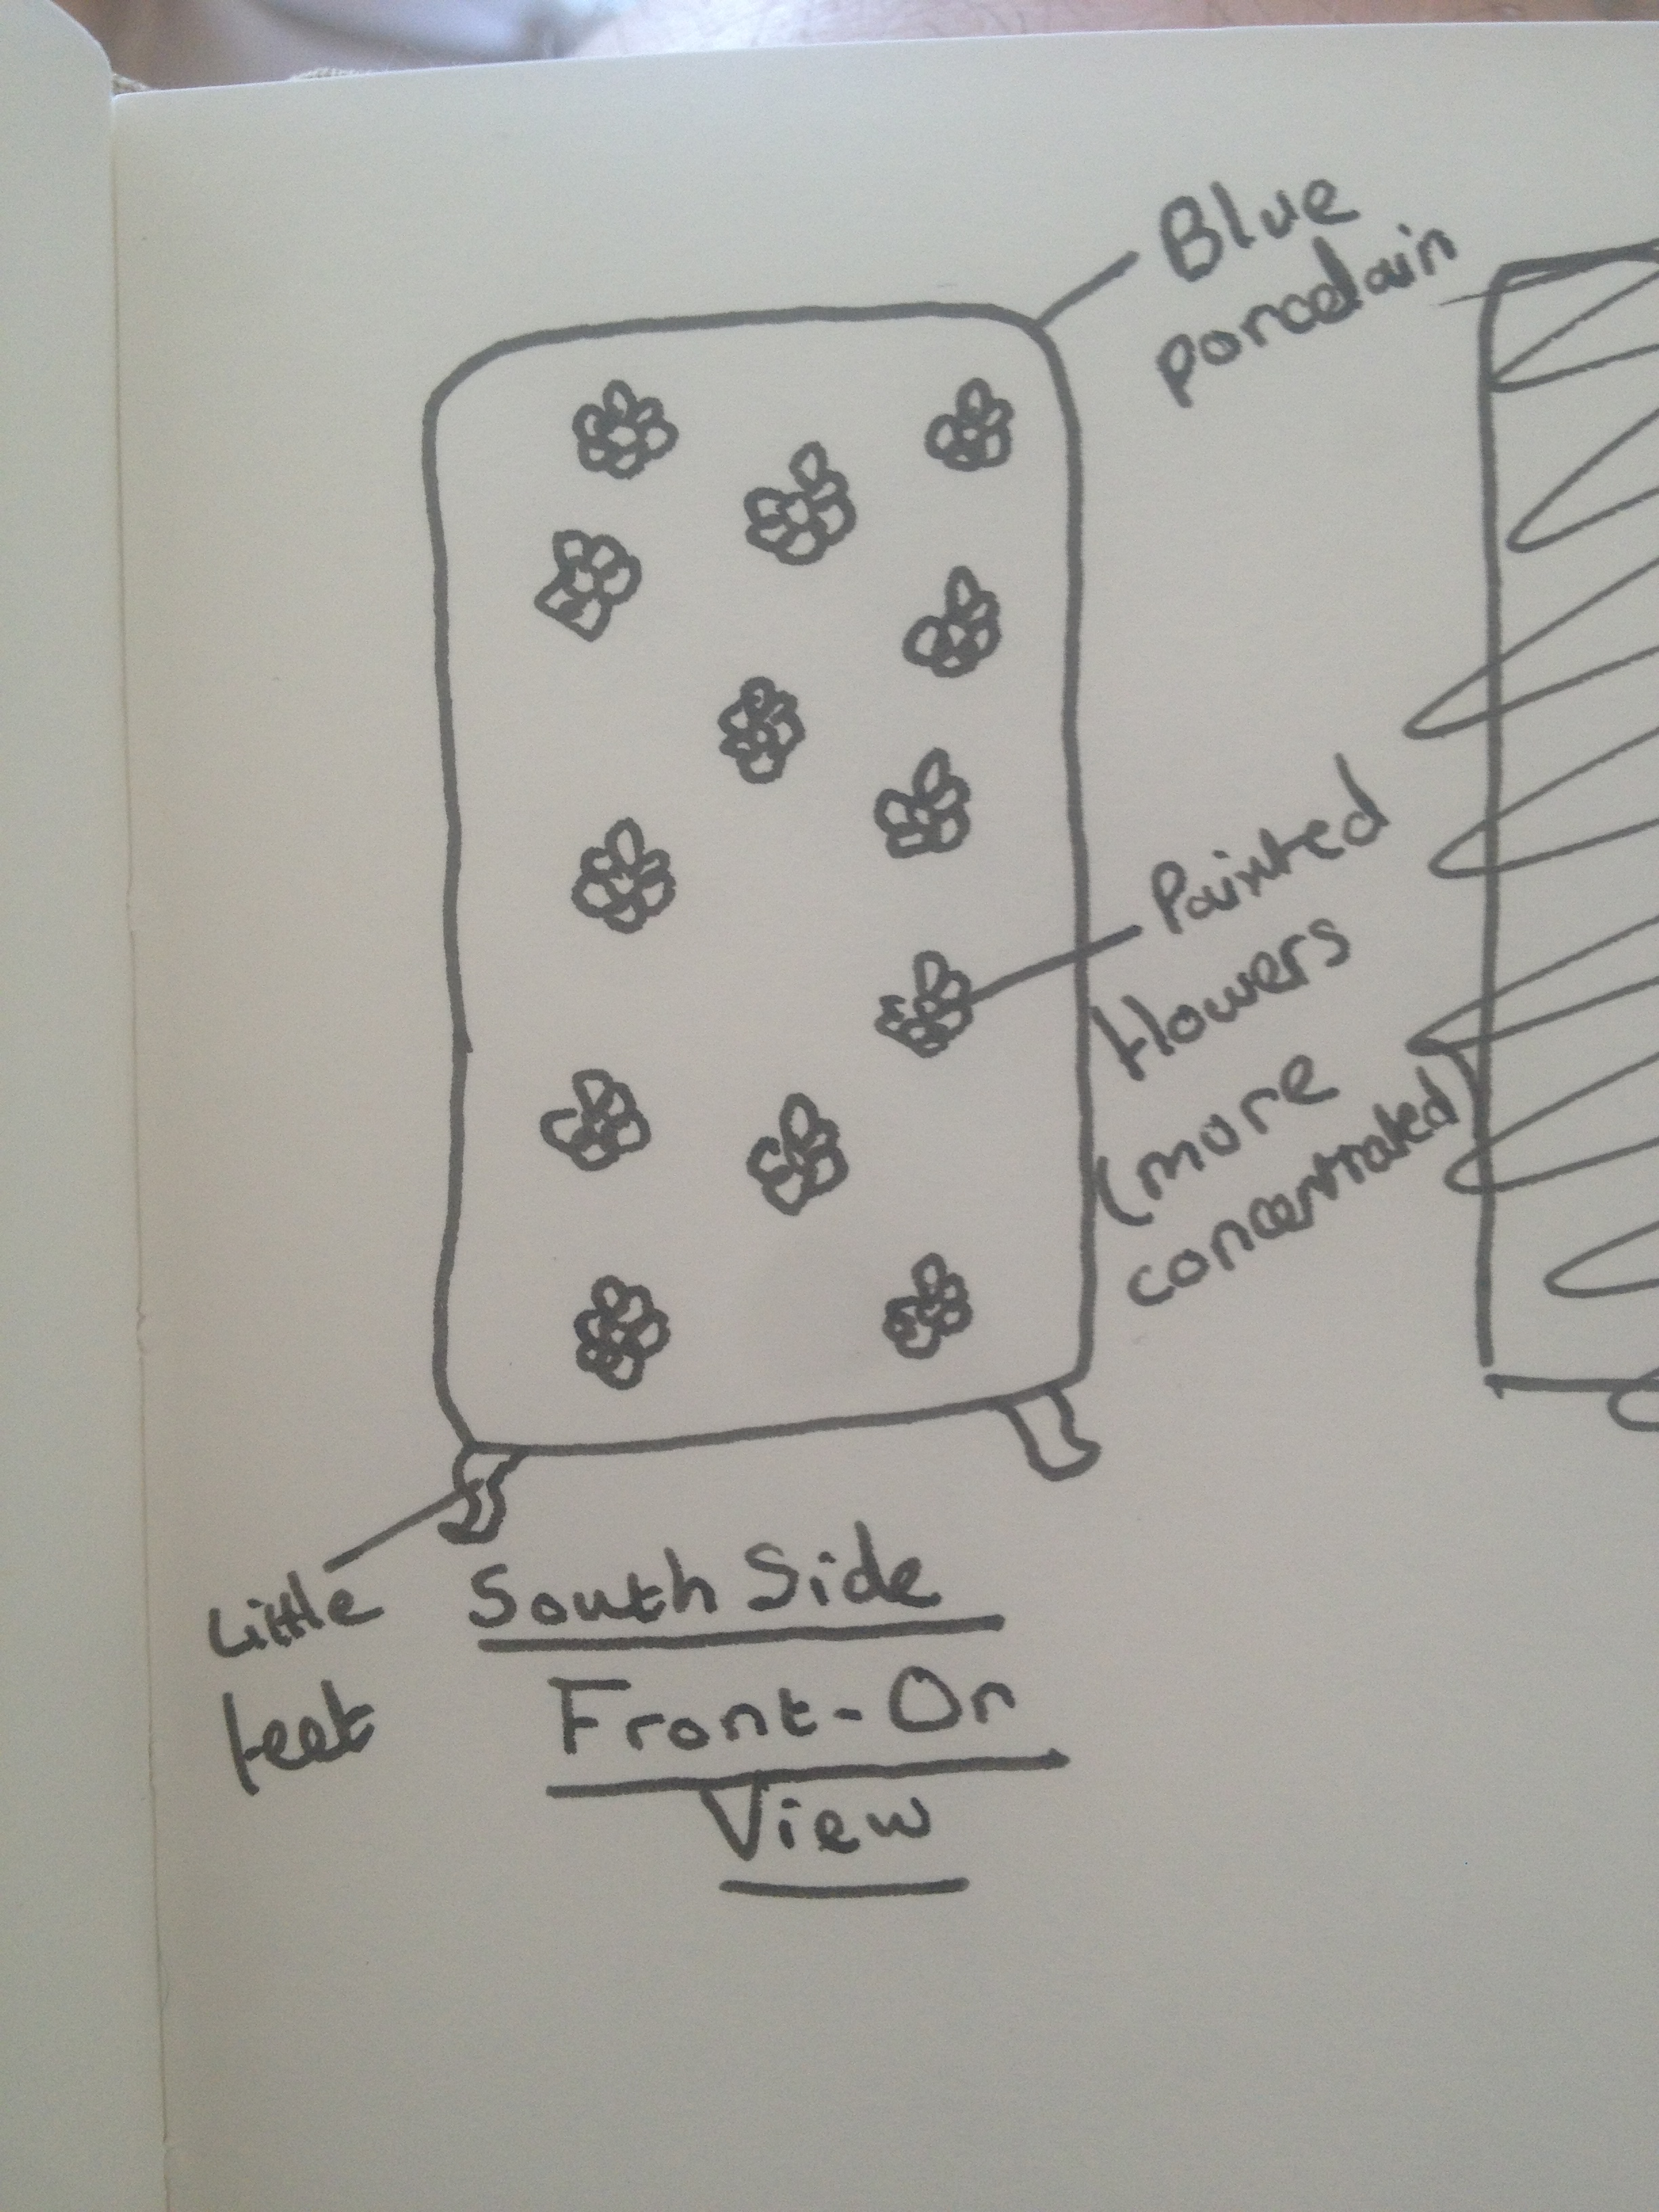 Blue
porcelain
Painted
flowers
(more
concentrated)
Little
feet
South Side
Front-On
View